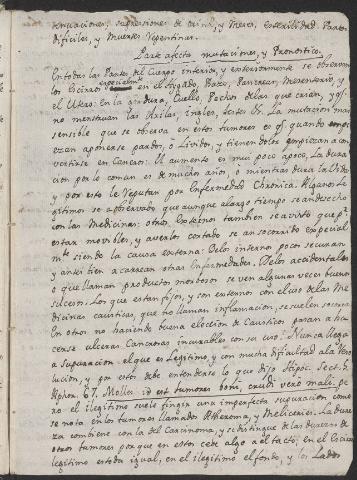 tenuaciones, supresiones de orina, y Meses, esterilidad Partos
dificiles, y Muertes repentinas.
Parte afecta mutaciones, y Pronostico.
En todas las Partes del Cuerpo interior, y exteriormente se observan
los Escirros especialmte en el Higado, Bazo, Pancreas, Mesenterio, y
el Utero: En la Cuello, Pechos de las que crian, y q. no
menstruan las Axilas, Ingles, testes &. La mutacion mas
sensible que se observa en estos tumores es q. quando empi-
ezan aponerse pardos, o Lividos, y tienen dolor empiezan a con
vertirse en Cancro: El aumento es mui poco apoco, La dura
cion por lo comun es de muchos años, o mientras dura la Vida
y por esto le Reputan por Enfermedad Chronica. Algunos Le
gitimos se a observado que aunque es largo tiempo se an desecho
con las Medicinas: otros Externos tambien se a visto que pr
estar movibles, y averlos cortado se an socorrido especial
mte siendo la causa externa. Delos internos pocos se curan
y antes bien acarrean otras Enfermedades. Delos accidentales
o que llaman productos morbosos se ven algunas veces buenos
sucesos. Los que estan fijos, y son externos con el uso de las Me
dicinas causticas, que ho llaman inflamacion, se suelen socorrer
En otros no haciendo buena eleccion de Caustico paran a ha
cerse ulceras Cancrosas incurables con su uso. Nunca llega
a Supuracion el que es Legitimo, y con mucha dificultad a la Reso
lucion, y por esto debe entenderse lo que dijo Hipoc. Sect. 5.
Aphor. 67. Molles id est tumores boni, crudi vero mali. pe
ro el ilegitimo suele fingir una imperfecta supuracion como
se nota en los tumores llamados Atheroma, y Meliceris. La dure
za conviene con la del Carcinoma, y se distingue de las durezas de
otros tumores porque en estos cede algo al tacto, en el Escirro
legitimo es toda igual, en el ilegitimo el fondo, y los Lados